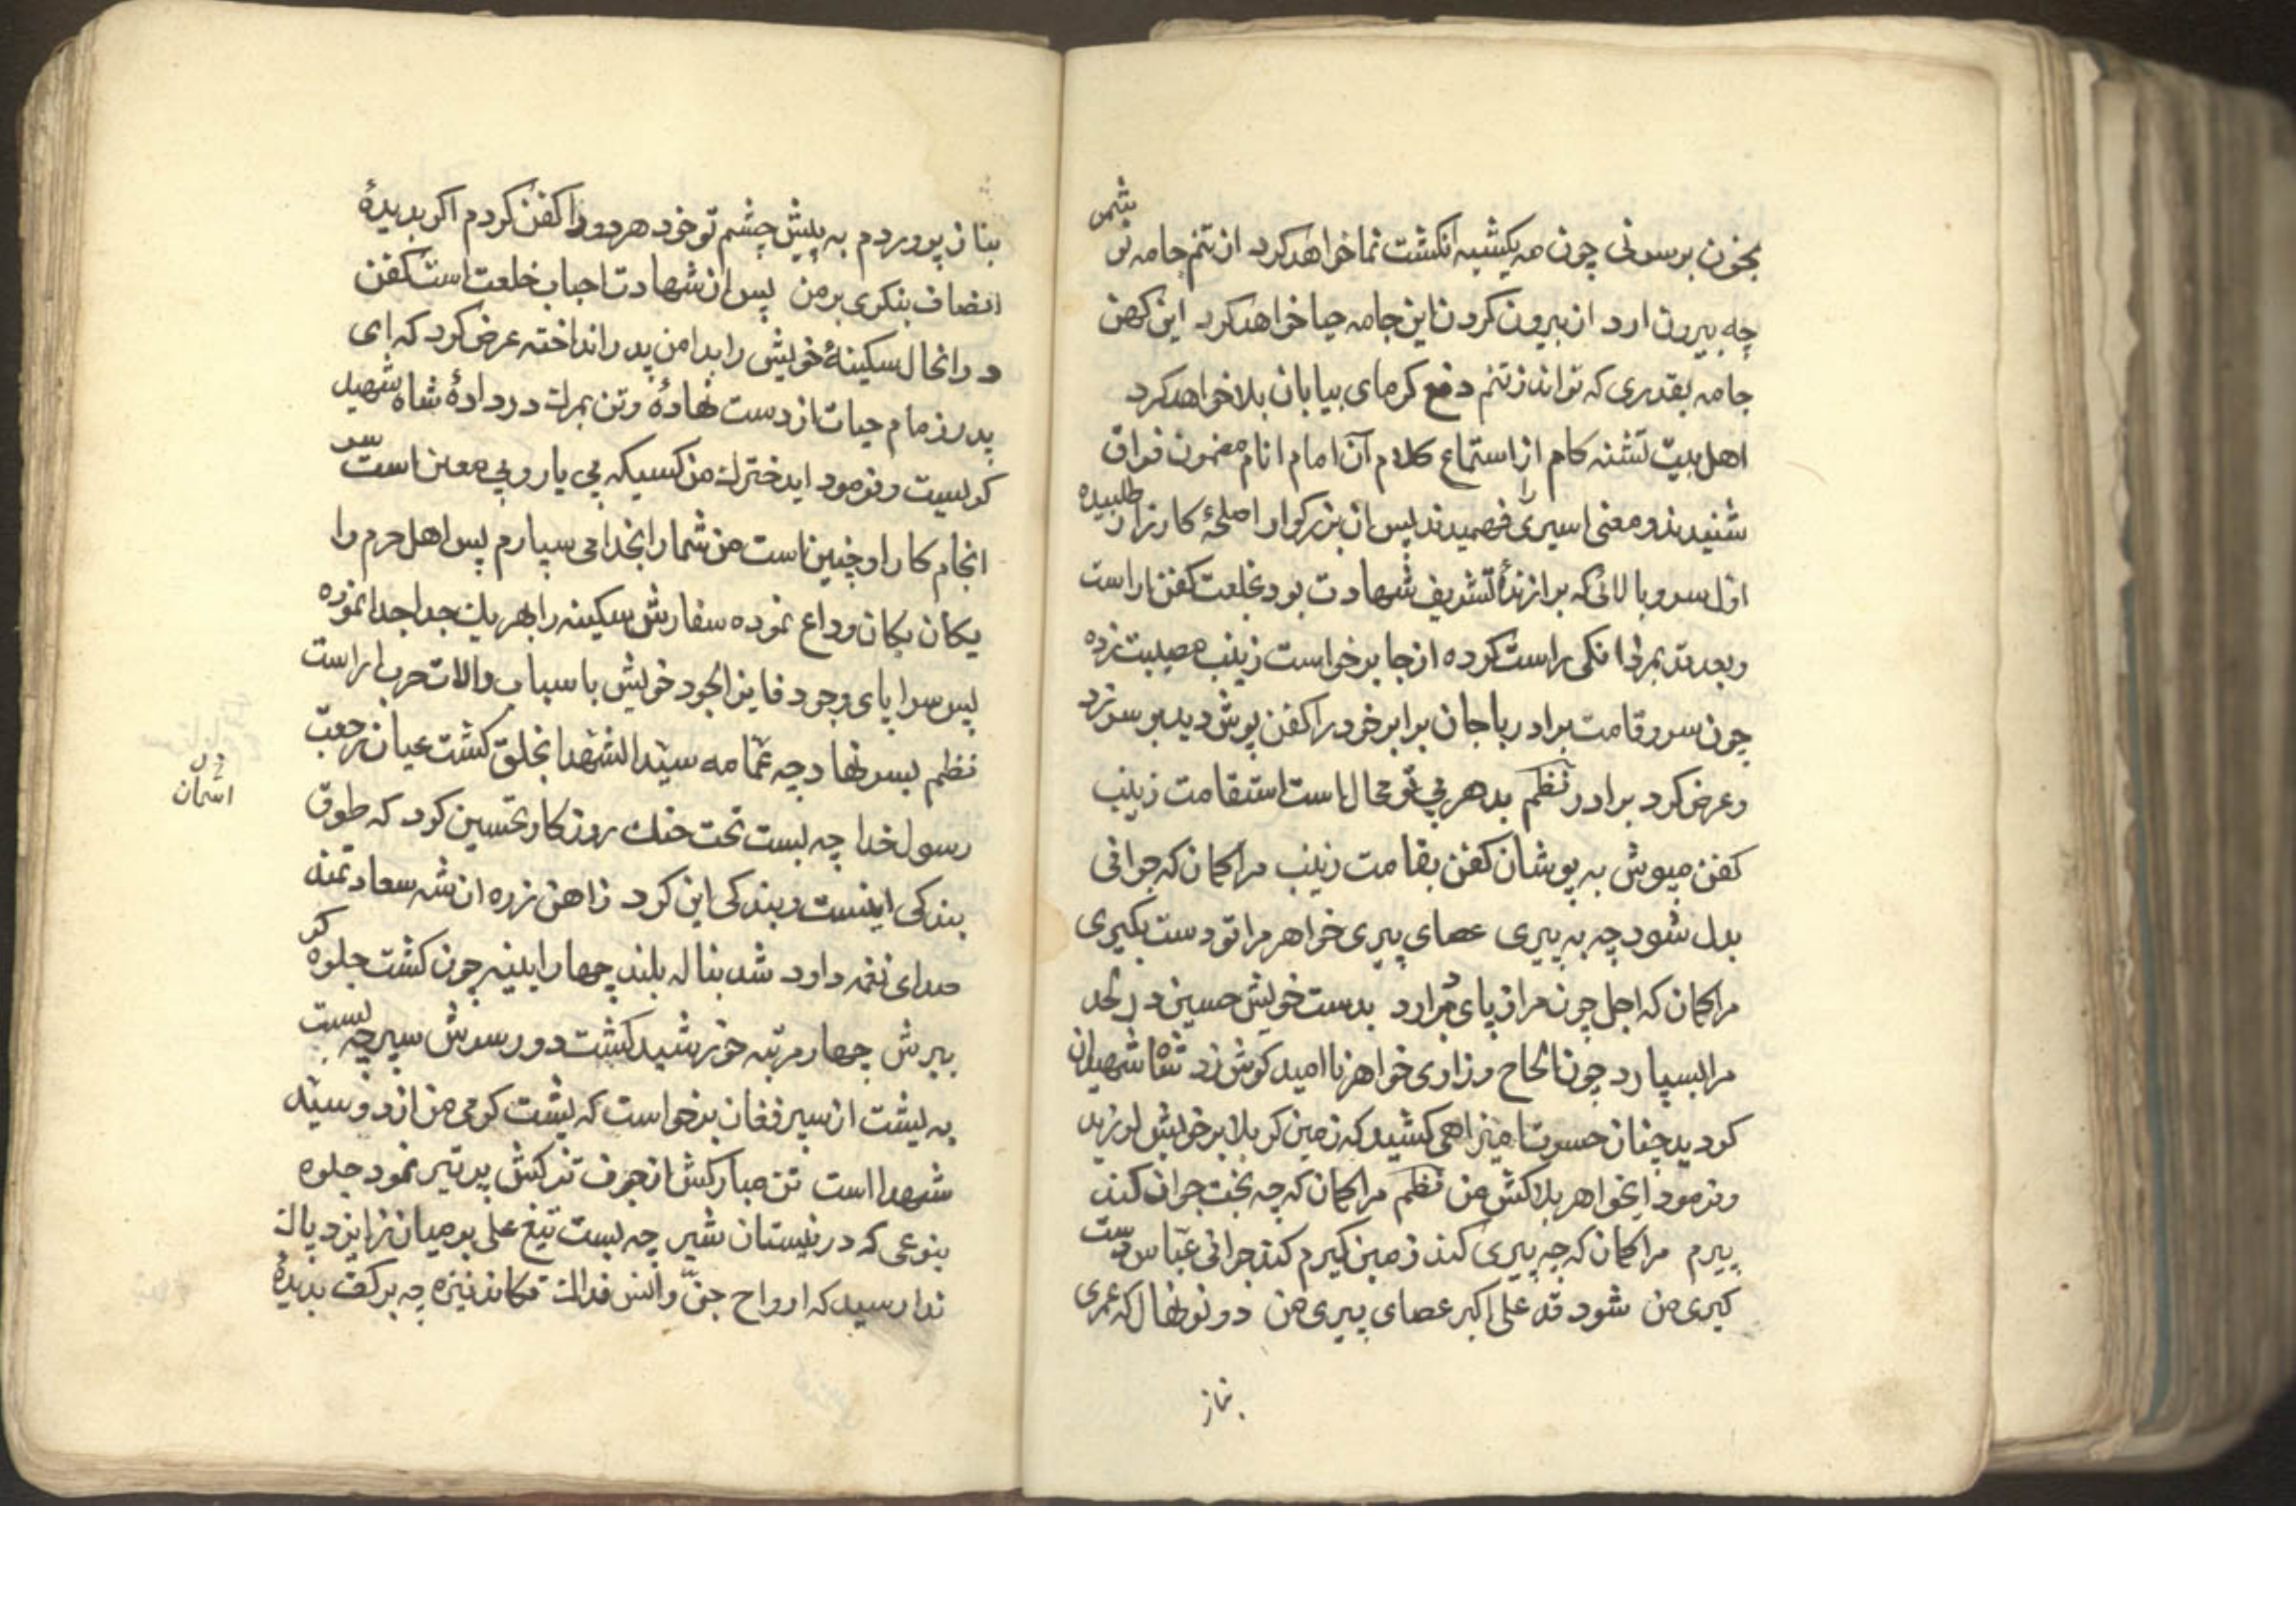 شمر
بخون بر سونی چون مه یکشبه انکشت نما خواهد کرد از تنم جامه نو
چه بیرون ارد از بیرون کردن این جامه حیا خواهد کرد این کهن
جامه بقدری که تواند ز تنم دفع کرمای بیابان بلا خواهد کرد
اهل بیت تشنه کام از استماع کلام آن امام انام مضمون فراق
شنیدند و معنی اسیری را فهمیدند پس ان بزرکوار اصلحهٔ کارزار طلبیده
اول سرو بالائی که برازندهٔ تشریف شهادت بود بخلعت کفن اراست
وبعد قد بمردانکی راست کرده از جا برخواست زینب مصیبت زده
چون سرو قامت برادر با جان برابر خود را کفن پوش دید بر سر زد
وعرض کرد برادر نظم بدهر بی تو محال است استقامت زینب
کفن مپوش به پوشان کفن بقامت زینب مرا کمان که جوانی
بدل شود چه به پیری عصای پیری خواهر مرا تو دست بکیری
مرا کمان که اجل چون مرا ز پای در ارد بدست خویش حسین در لحد
مرا بسپارد چون الحاح وزاری خواهر نا امید کوش زد شاه شهیدان
کردید چنان حسرت امیز اهی کشید که زمین کربلا بر خویش لرزید
وفرمود ایخواهر بلاکش من نظم مرا کمان که چه بخت جوان کند
پیرم مرا کمان که چه پیری کند زمین کیرم کند جوانی عباس دست
کیری من شود قد علی اکبر عصای پیری من دو نونهال که عمری
بناز
بناز پروردم به پیش چشم تو خود هر دو را کفن کردم اکر بدیدهٔ
انصاف بنکری بر من پس از شهادت احباب خلعت است کفن
در انحال سکینهٔ خویش را بدامن پدر انداخته عرض کرد که ای
پدر زمام حیات از دست نهادهٔ وتن بمرك در دادهٔ شاه شهید
کریست وفرمود ایدخترك من کسیکه بی یار و بی معین است
انجام کار او چنین است من شما را بخدا می سپارم پس اهل حرم را
یکان یکان وداع نموده سفارش سکینه را بهر یك جدا جدا نموده
پس سرا پای وجود فایز الجود خویش با سباب والات حرب اراست
نظم بسر نهاد چه عمامه سید الشهدا بخلق کشت عیان رجعت
رسول خدا چه بست تحت حنك روزکار تحسین کرد که طوق
بندکی اینست و بندکی این کرد ز اهن زره ان شه سعادتمند
صدای نغمه داود شد بناله بلند چهار ایینه چون کشت جلوه کر
ببرش چهار مرتبه خورشید کشت دور سرش سپر چه بست
به پشت از سپر فغان برخواست که پشت کرمی من از دو سید
شهدا است تن مبارکش از جوف ترکش پر تیر نمود جلوه
بنوعی که در نیستان شیر چه بست تیغ علی بر میان ز ایزد پاك
ندا رسید که ارواح جن وانس فداك تکاند نیزه چه بر کف بدیدهٔ
در
اسمان